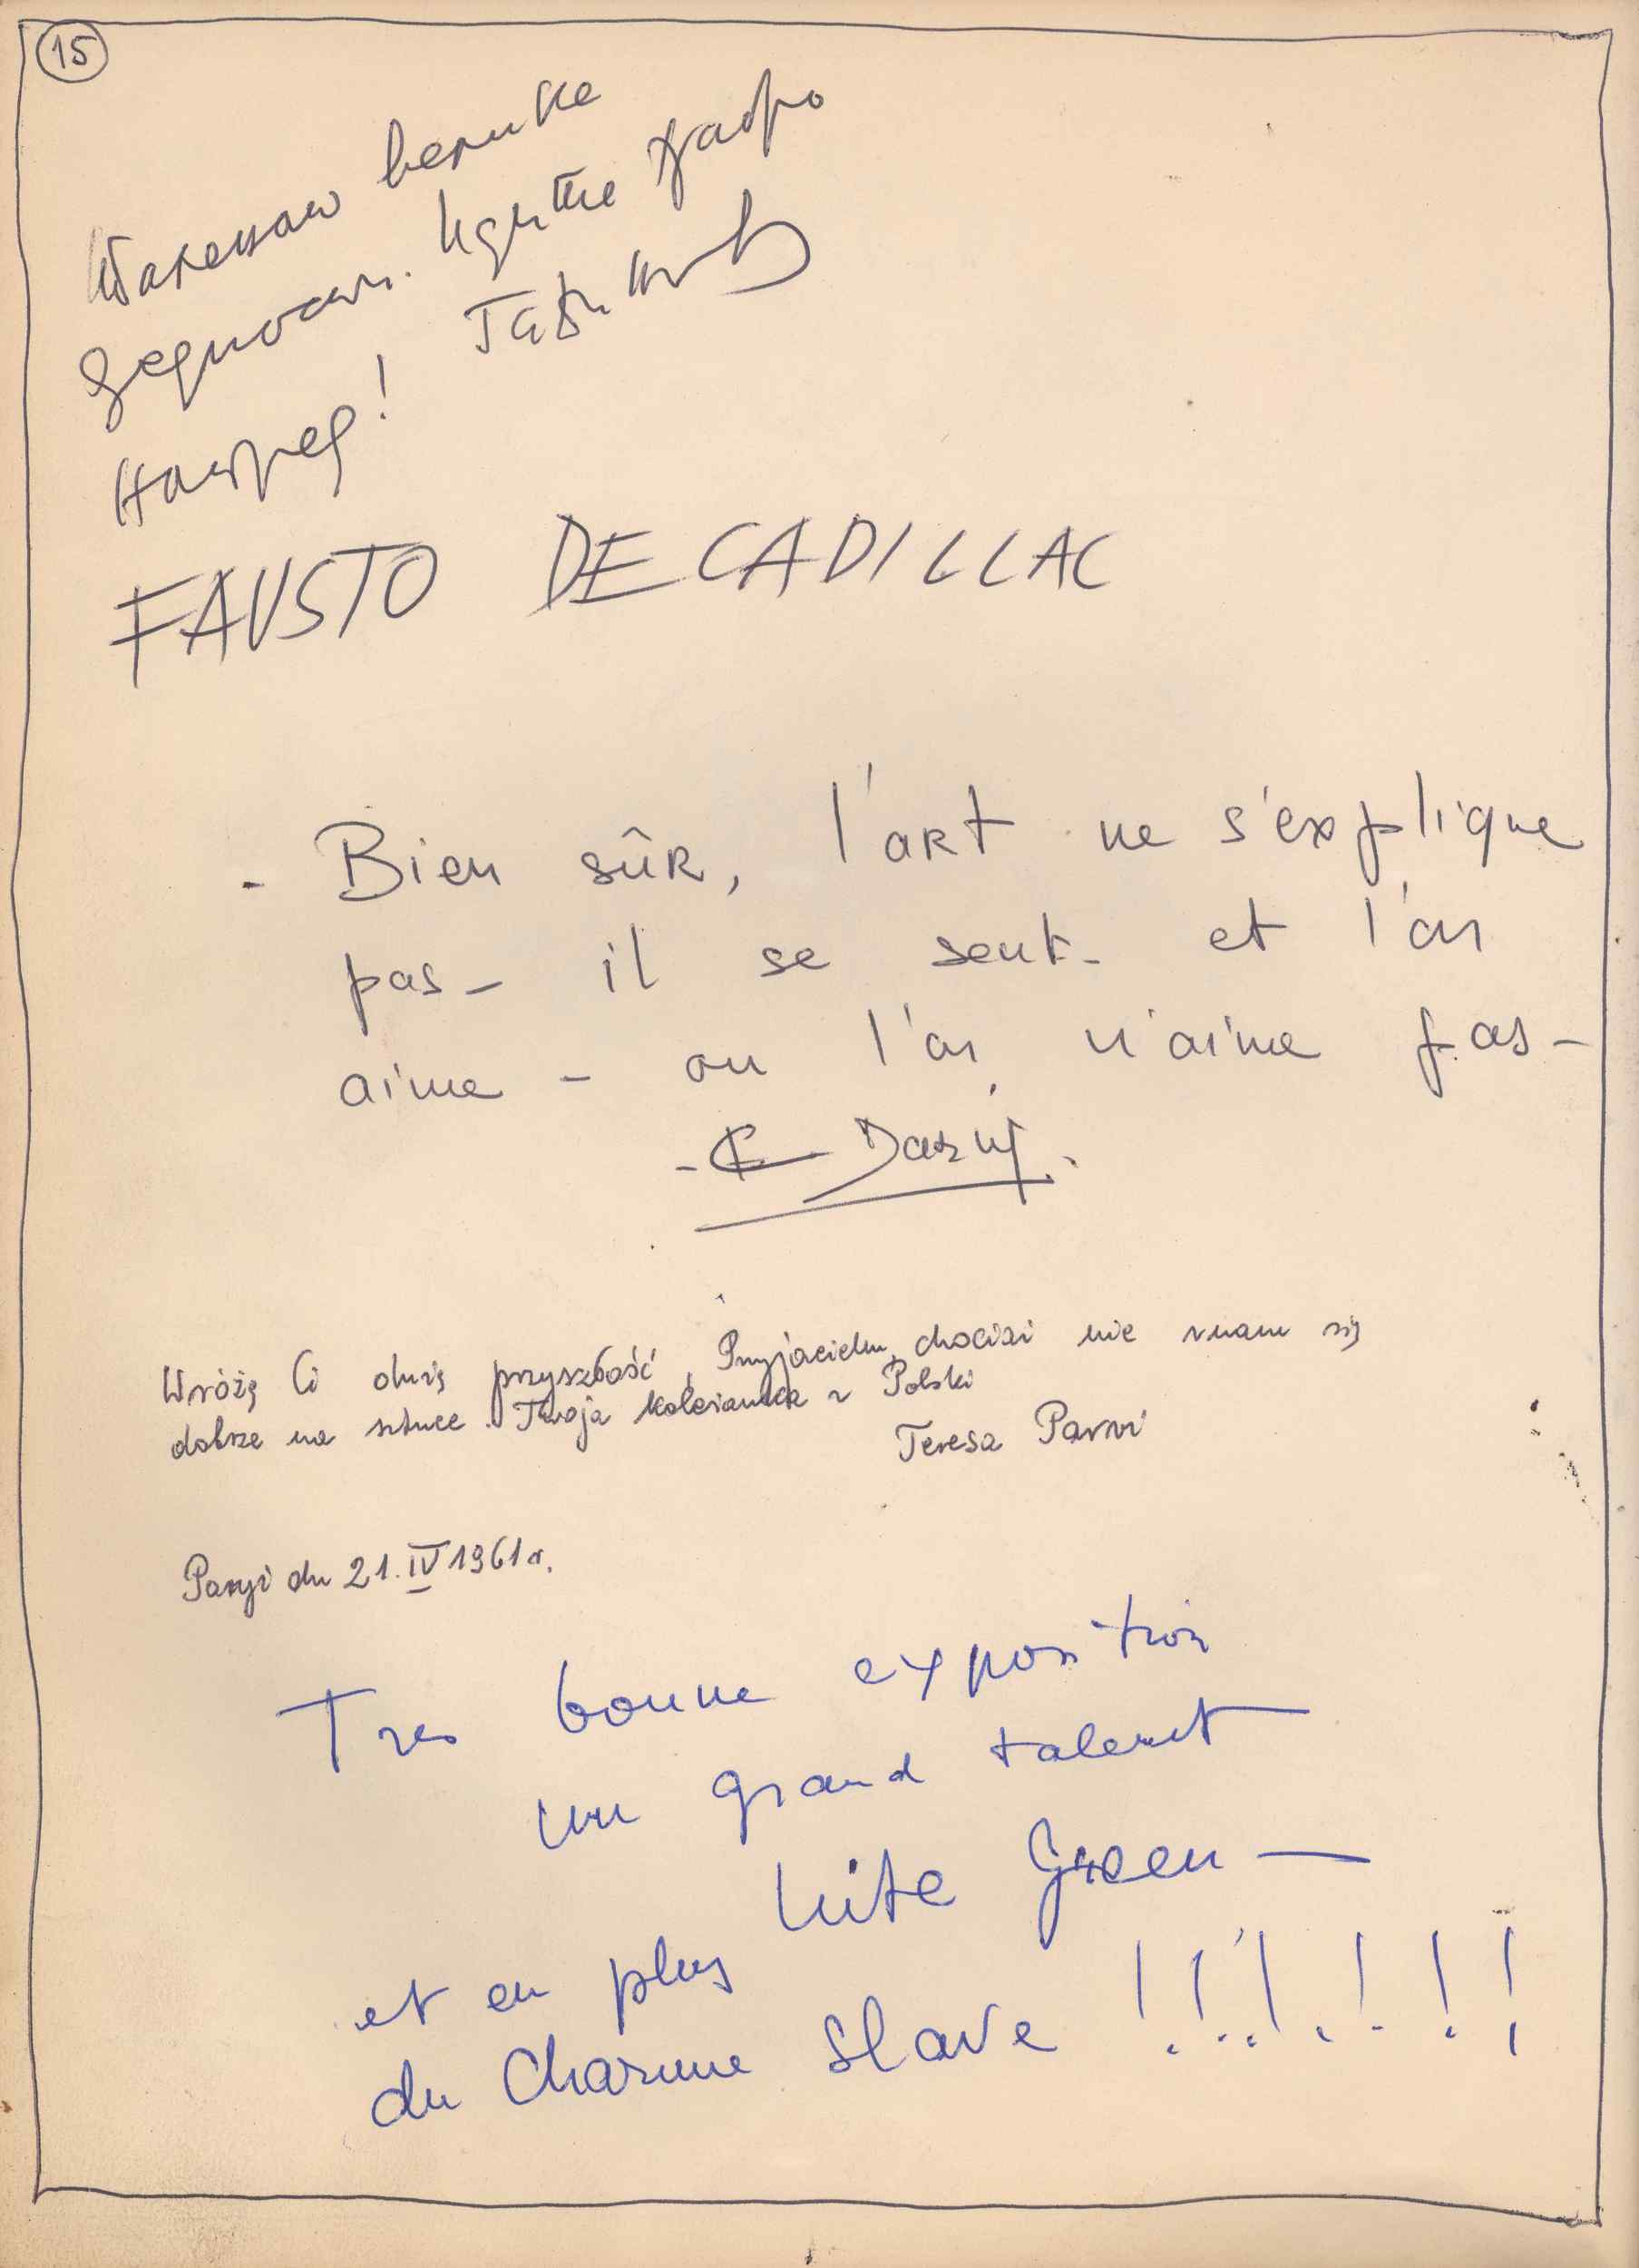 15
Таленат велике
вредности. Идите храбро
напред!
FAUSTO DE CADILLAC
- Bien sûr, l'art ne s'explique
pas - il se sent - et l'on
aime - ou l'on n'aime pas -
Wróżę Ci dużą przyszłość, Przyjacielu, chociaż nie znam się
dobrze na sztuce. Twoja koleżanka z Polski
Teresa
Paryż dn 21.IV 1961 r.
Tres bonne exposition
un grand talent
Green —
et en plus
du Charme Slave !!!!!!